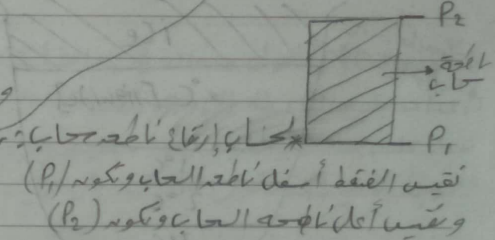 P2
ناطحة
سحاب
P1
* لحساب إرتفاع ناطحه سحاب :-
نقيس الضغط أسفل ناطحه السحاب ويكون (P1)
ونقيس أعلى ناطحه السحاب ويكون (P2)